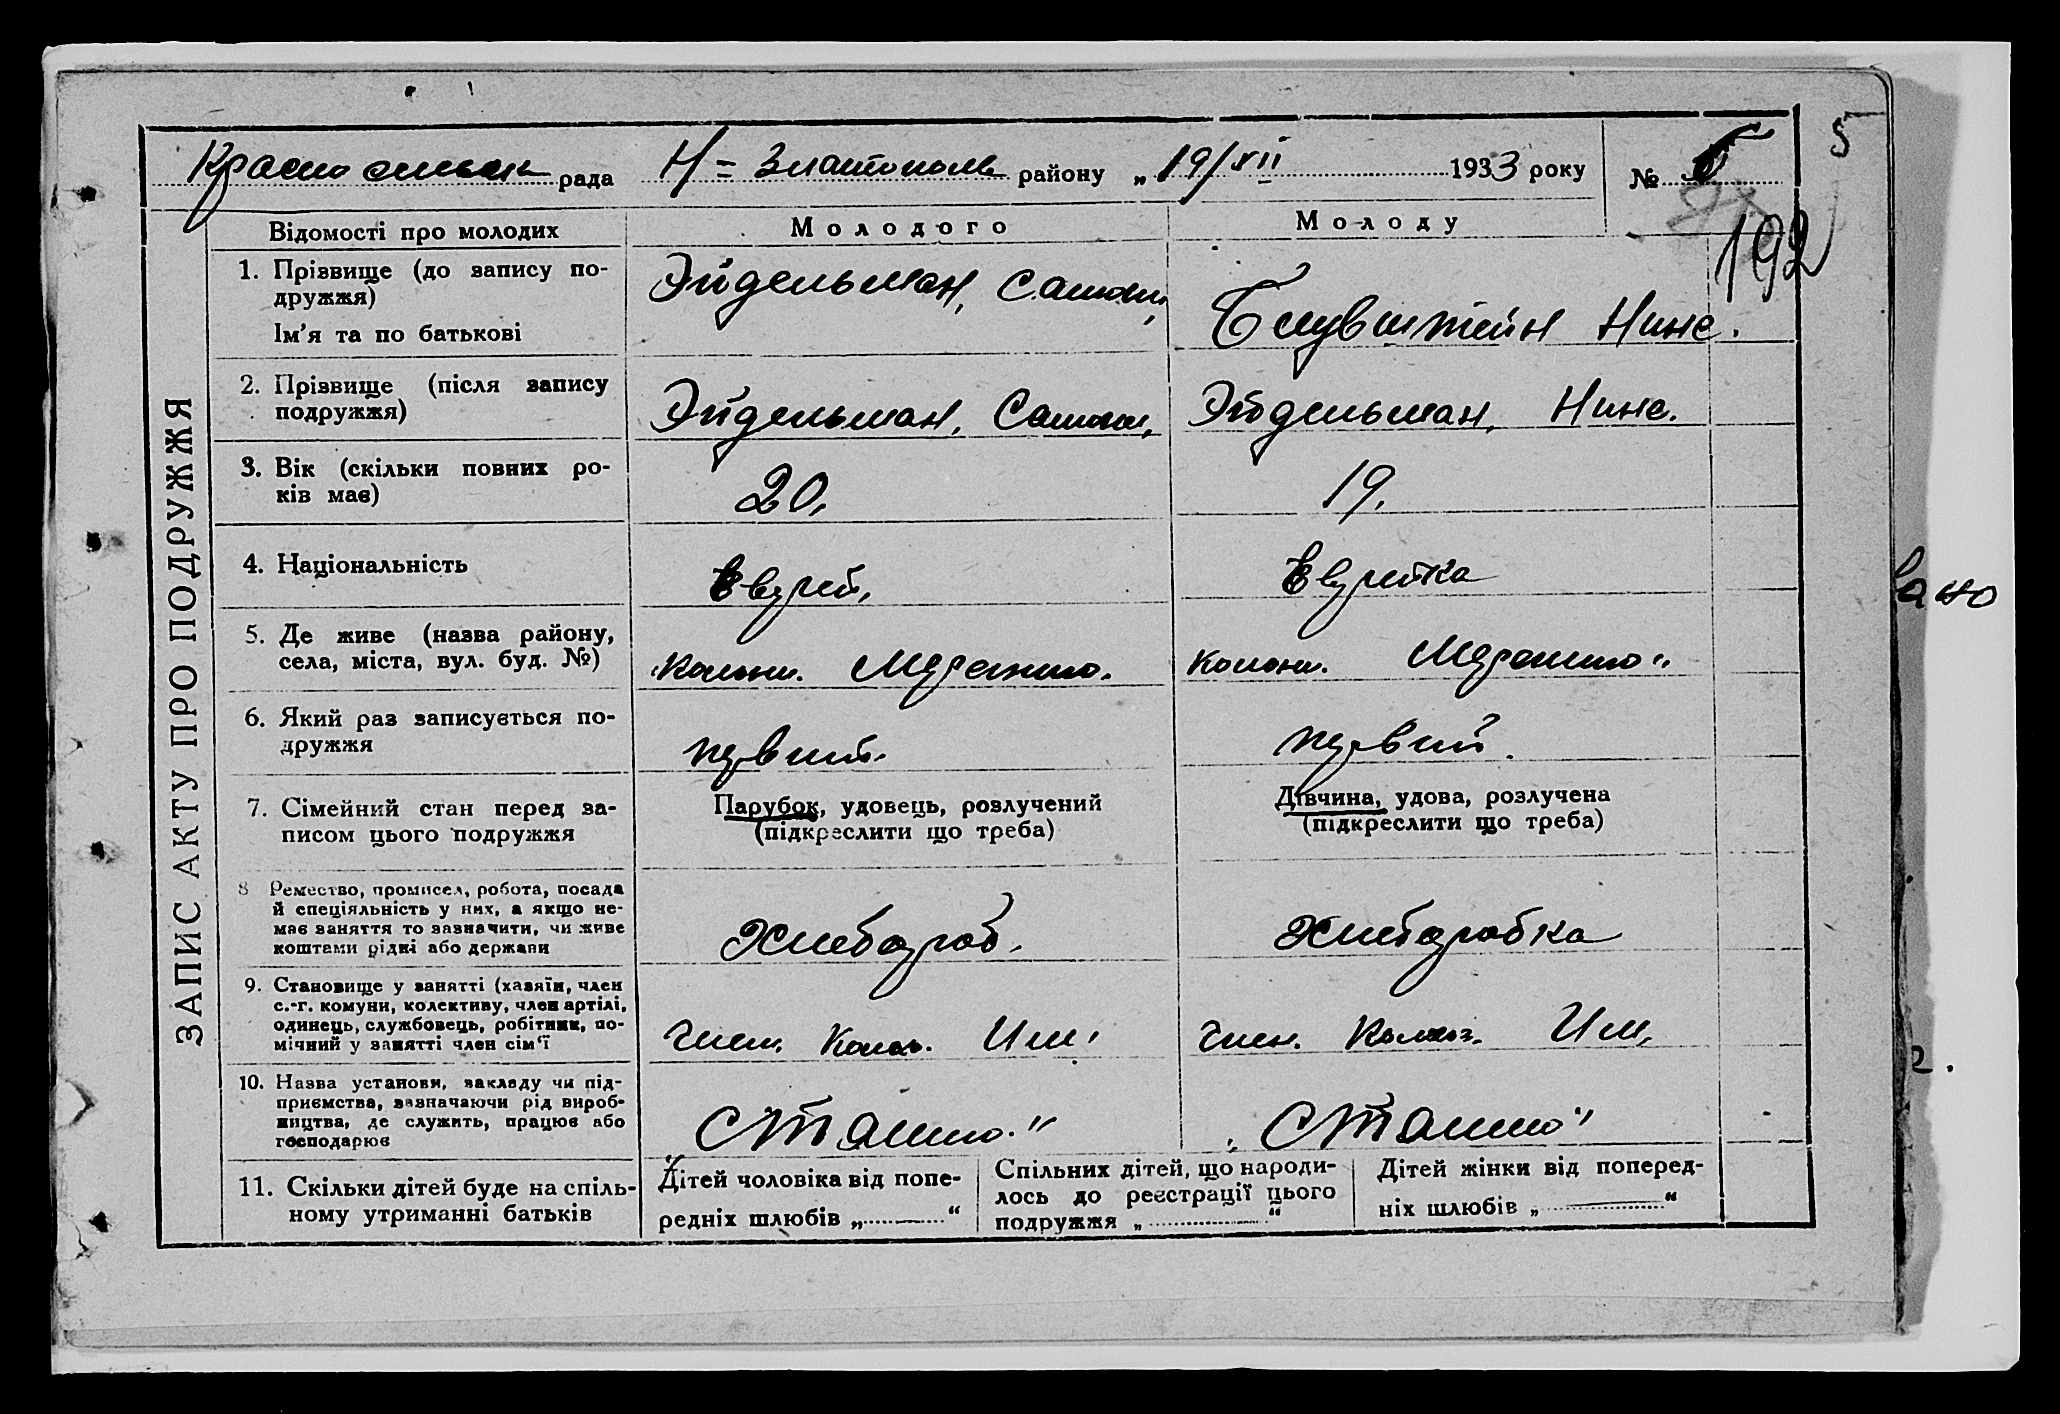 5
Красносільськ рада Н=Златополь району „19/XII 1933 року № 5
192
ЗАПИС АКТУ ПРО ПОДРУЖЖЯ
Відомості про молодих Молодого Молоду
1. Прізвище (до запису по-
дружжя)
Ім'я та по батькові
Эйдельман,
Нина.
2. Прізвище (після запису
подружжя)
Эйдельман, Эйдельман, Нина.
3. Вік (скільки повних ро-
ків має)
20, 19,
4. Національність
Еврей, Еврейка
5. Де живе (назва району,
села, міста, вул. буд. №)
6. Який раз записується по-
дружжя
первий. первий.
7. Сімейний стан перед за-
писом цього подружжя
Парубок, удовець, розлучений
(підкреслити що треба)
Дівчина, удова, розлучена
(підкреслити що треба)
8 Ремество, промисел, робота, посада
й спеціяльність у них, а якщо не-
має заняття то зазначити, чи живе
коштами рідні або держави
Хлебороб. Хлеборобка
9. Становище у занятті (хазяїн, член
с.-г. комуни, колективу, член артілі,
одинець, службовець, робітник, по-
мічний у занятті член сім'ї
член. Им. член. Колхоз. Им.
10. Назва установи, закладу чи під-
приємства, зазначаючи рід вироб-
ництва, де служить, працює або
господарює
11. Скільки дітей буде на спіль-
ному утриманні батьків
Дітей чоловіка від попе-
редніх шлюбів „ — “
Спільних дітей, що народи-
лось до реєстрації цього
подружжя „ — “
Дітей жінки від поперед-
ніх шлюбів „ — “